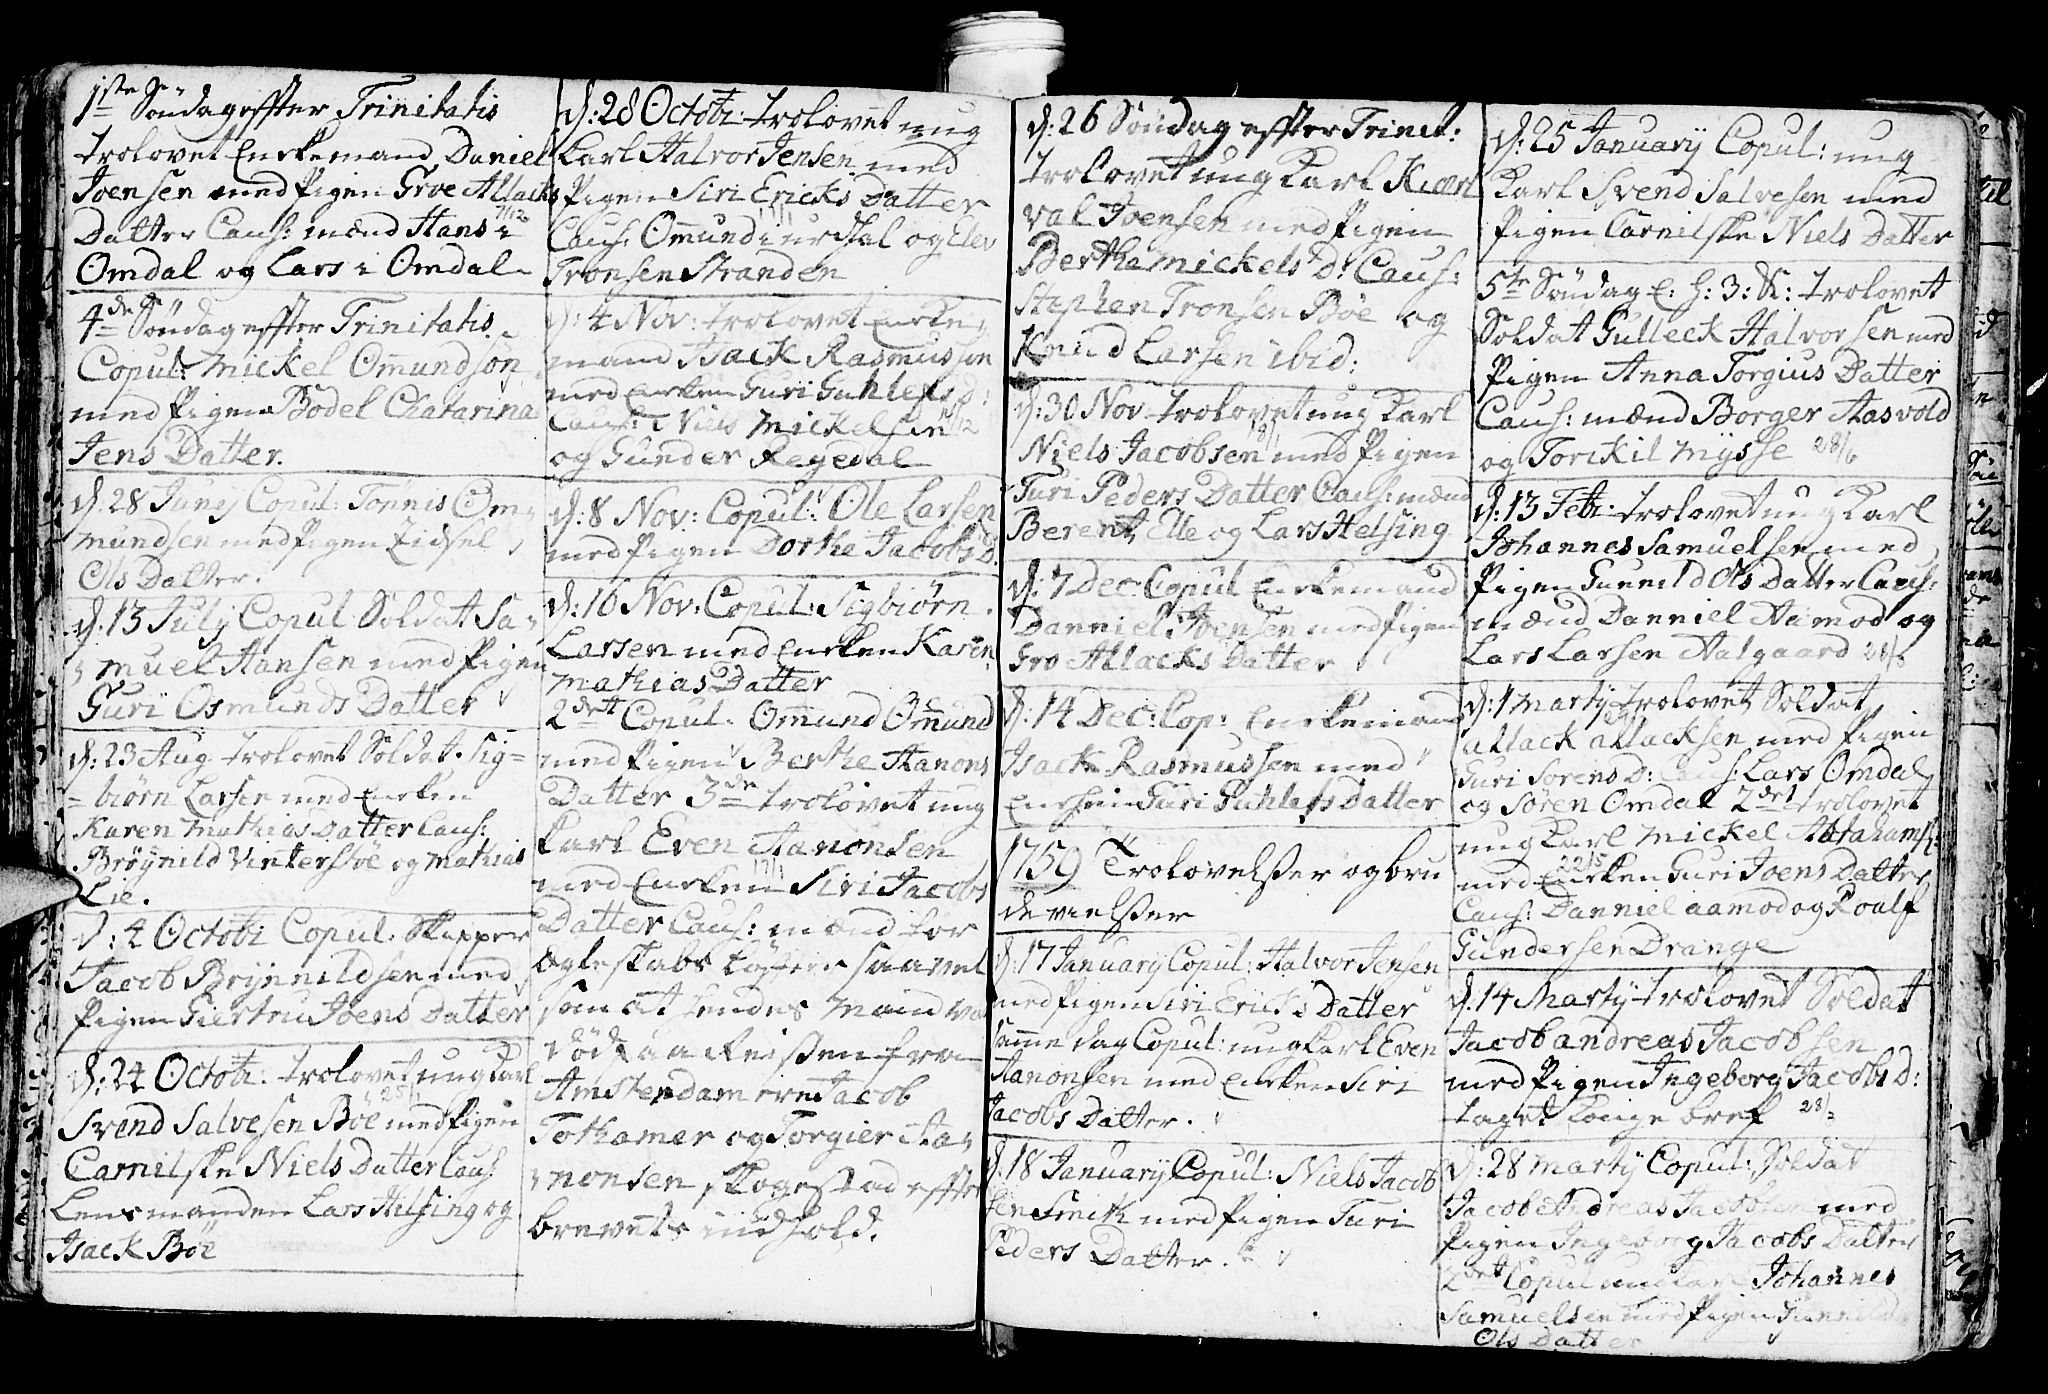 1ste Söndag effter Trinitatis
trolovet Enkemand Daniel
Joensen med Pigen Groe Atlacks
Datter Caus: mænd Hans i 7/12
Omdal og Lars i Omdal
4de Söndag effter Trinitatis
Copul: Mickel Omundson
med Pigen Bodel Chatarina
Jens Datter.
d. 28 Junij Copul: Tönnis Om-
mundsen med Pigen Zidsel
Ols Datter.
d. 13 July Copul Soldat Sa-
muel Hansen med Pigen
Guri Osmunds Datter
d: 23 Aug trolovet Soldat Sig=
=biörn Larsen med Enken
Karen Mathias Datter Caus:
Bröÿnild Vinterstöe og Mathias
Lie.
d: 4 Octobr Copul: Skipper
Jacob Brynnildsen med
Pigen Giertru Joens Datter
d: 24 Octobr: trolovet ung Karl
Svend Salvesen Böe med Pigen 25/1
Carnilske Niels Datter Caus:
Lensmanden Lars Hilsing og
Isack Böe
d: 28 Octobr: trolovet ung
Karl Halvor Jensen med
Pigen Siri Ericks Datter
Caus: Omund i urdsal og Elev 17/1
Tronsen Stranden
d: 4 Nov: trolovet Enke-
mand Isack Rasmusson
med Enken Guri Guhleks d:
Caus: Niels Mickelsen 14/12
og Gunder Regedal
d: 8 Nov: Copul: Ole Larsen
med Pigen Dorthe Jacobs D.
d: 16 Nov: Copul: Sigbiörn
Larsen med Enken Karen
Mathias Datter
2det Copul: Omund Omund
med Pigen Berthe Hanons
Datter 3de trolovet ung
Karl Even Hanonsen
med Enken Siri Jacobs 17/1
Datter Caus: mænd for
Egteskabs Löfter saavel
som at hendes Mand var
död paa Reisen fra
Amsterdam ere Jacob
Tothamer og Torgier Ha-
nonsen Skogestad effter
brevets indhold.
d: 26 Söndag effter Trinit:
trolovet ung Karl Kiæt
val Joensen med Pigen
Berthe Mickels D: Caus:
Stephen Tronsen Böe og
Knud Larsen ibid:
d: 30 Nov trolovet ung Karl
Niels Jacobsen med Pigen 18/1
Turi Peders Datter Caus: mænd
Berent Elle og Lars Helsing
d: 7 Dec Copul Enkemand
Danniel Joensen med Pigen
Gro Atlacks Datter
d: 14 Dec: Cop: Enkemand
Isack Rasmussen med
Enchen Guri Guhleks Datter
1759 Trolovelsser og bru
devielsser
d: 17 Januarij Copul: Halvor Jensen
med Pigen Siri Ericks Datter
samme dag Copul: ung Karl Even
Hanonsen med Enken Siri
Jacobs Datter.
d. 18 Januarij Copul: Niels Jacob
sen Smith med Pigen Turi
Peders Datter.
d: 25 Januarij Copul: ung
Karl Svend Salvesen med
Pigen Carnilske Niels Datter
5te Söndag E: h: 3: K: trolovet
Soldat Gulleck Halvorsen med
Pigen Anna Torgius Datter
Caus: mænd Borger Aasvold
og Torckil Mysse 28/6
d: 13 Febr: trolovet ung Karl
Johannes Samuelsen med
Pigen Gunild Ols Datter Caus:
mænd Danniel Aamod og
Lars Larsen Aalgaard 28/3
d: 1 Martij trolovet Soldat
atlack atlacksen med Pigen
Guri Sorens D: Caus: Lars Omdal
og Sören Omdal 2det trolovet
ung Karl Mickel Abrahams:
med Enken Guri Joens Datter 22/5
Caus: Danniel aamod og Roalf
Gundersen Drange
d. 14 Martij trolovet Soldat
Jacob andreas Jacobsen
med Pigen Ingeborg Jacobs D:
taget Konge bref 28/3
d: 28 Martij Copul: Soldat
Jacob Andreas Jacobsen med
Pigen Ingeborg Jacobs Datter
2det Copul ung Karl Johannes
Samuelsen med Pigen Gunnild
Ols Datter